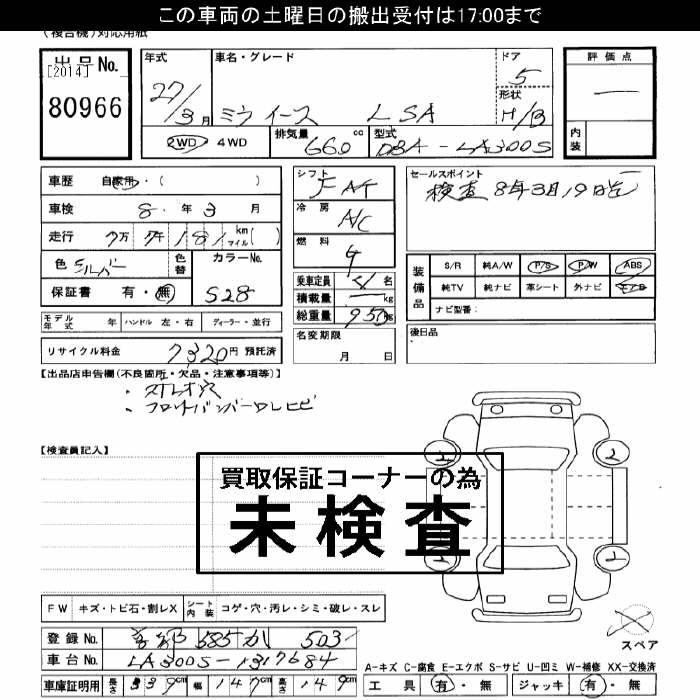 この車両の土曜日の搬出受付は17:00まで
(複合機)対応用紙
出品No.
[2014]
80966
年式 27/3月
車名・グレード ミライース LSA
ドア 5
形状 H/B
2WD・4WD
排気量 660 cc
型式 DBA-LA300S
評価点 —
内装
車歴 自家用・( )
車検 8.年 3 月
走行 7万 7千 181 km マイル( )
色 シルバー
色替
カラーNo. S28
保証書 有・無
モデル年式 年 ハンドル 左・右 ディーラー・並行
リサイクル料金 7320円 預託済
シフト FAT
冷房 A/C
燃料 G
乗車定員 名
積載量 — kg
総重量 950 kg
名変期限 月 日
セールスポイント
検査 8年3月19日迄
装備品
S/R 純A/W P/S P/W ABS
純TV 純ナビ 革シート 外ナビ
ナビ型番:
後日品
【出品店申告欄(不良箇所・欠品・注意事項等)】
・穴
・フロントバンパーワレヒビ
【検査員記入】
買取保証コーナーの為
未検査
FW キズ・トビ石・割レX シート内装 コゲ・穴・汚レ・シミ・破レ・スレ
登録No. 585 か 503
車台No. LA300S-1317684
車庫証明用 長さ 339cm 幅 147cm 高さ 149cm
スペア
A-キズ C-腐食 E-エクボ S-サビ U-凹ミ W-補修 XX-交換済
工具 有・無 ジャッキ 有・無